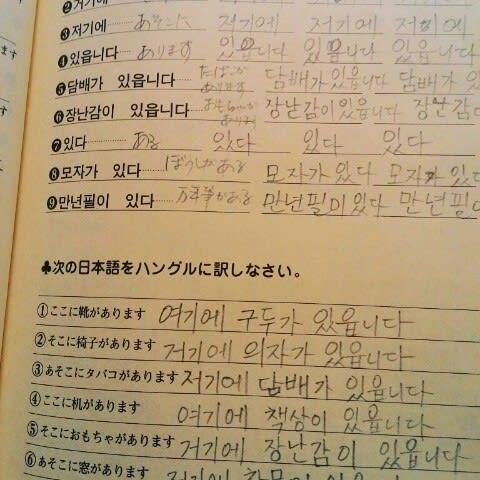 ❷거기에
❸저기에 あそこに 저기에 저기에 저기에
❹있읍니다 あります 있읍니다 있읍니다 있읍니다
❺담배가 있읍니다 たばこがあります 담배가 있읍니다 담배가 있
❻장난감이 있읍니다 おもちゃがあります 장난감이 있읍니다 장난감
❼있다 ある 있다 있다 있다
❽모자가 있다 ぼうしがある 모자가 있다 모자가 있다
❾만년필이 있다 万年筆がある 만년필이 있다 만년필
♣次の日本語をハングルに訳しなさい。
①ここに靴があります 여기에 구두가 있읍니다
②そこに椅子があります 거기에 의자가 있읍니다
③あそこにタバコがあります 저기에 담배가 있읍니다
④ここに机があります 여기에 책상이 있읍니다
⑤そこにおもちゃがあります 거기에 장난감이 있읍니다
⑥あそこに窓があります 저기에